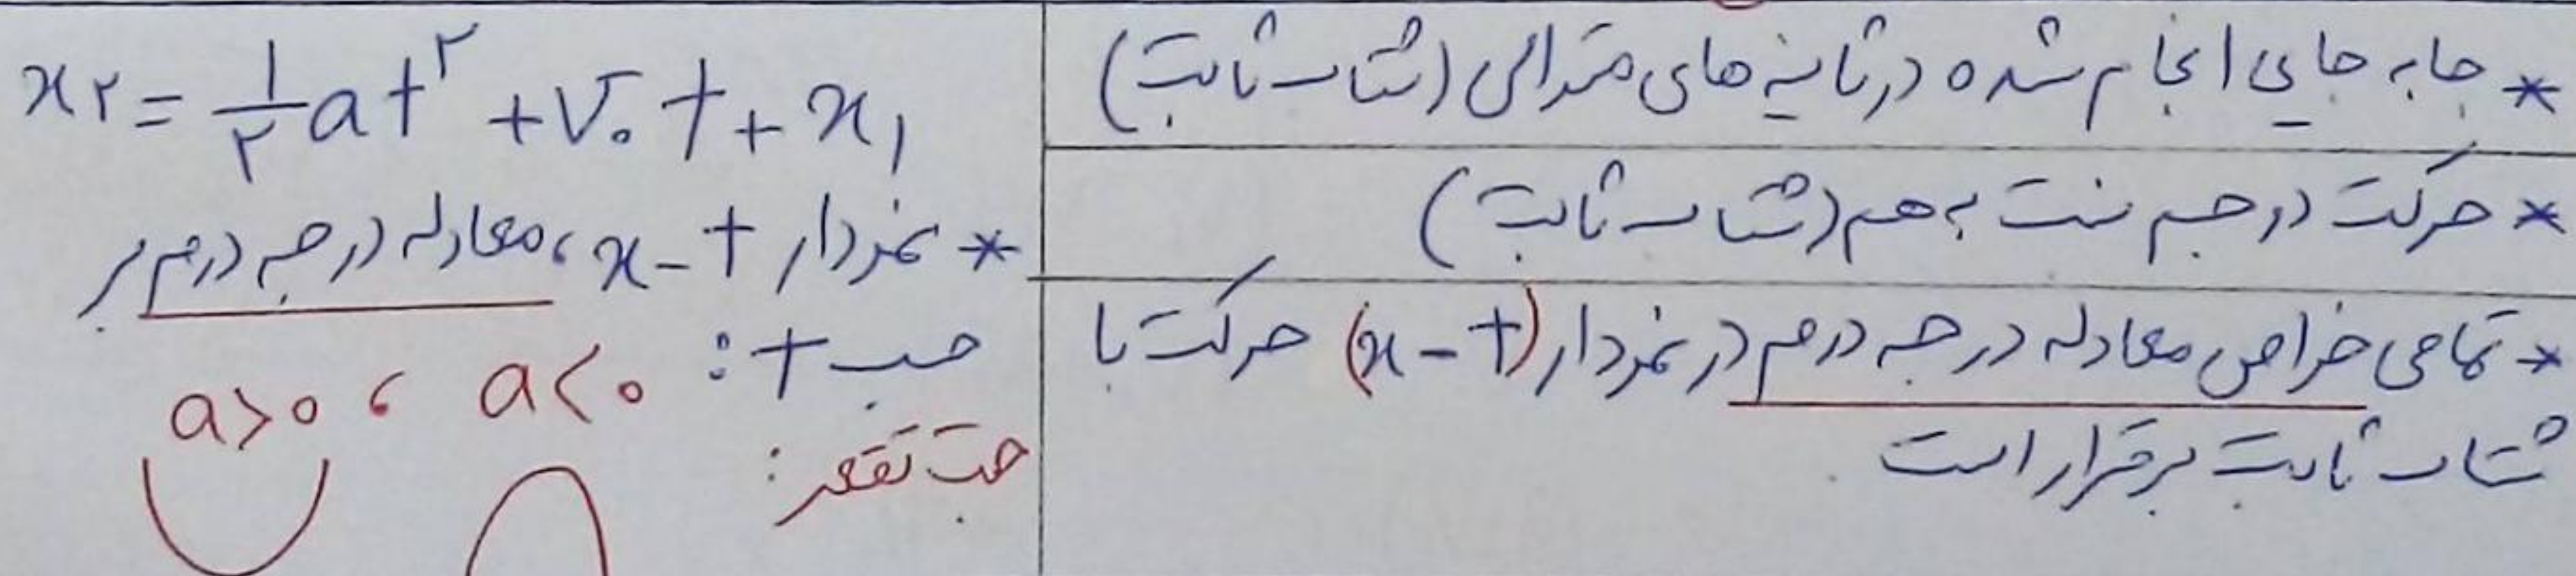 * جابه جایی انجام شده در ثانیه های متوالی (شتاب ثابت)
* حرکت دو جسم نسبت به هم (شتاب ثابت)
* تمامی خواص معادله درجه دوم در نمودار (x-t) حرکت با
شتاب ثابت برقرار است.
x۲ = ۱/۲ at۲ + V۰t + x۱
* نمودار x-t، معادله درجه دوم بر
حسب t:
a>۰ ، a<۰
جهت تقعر: